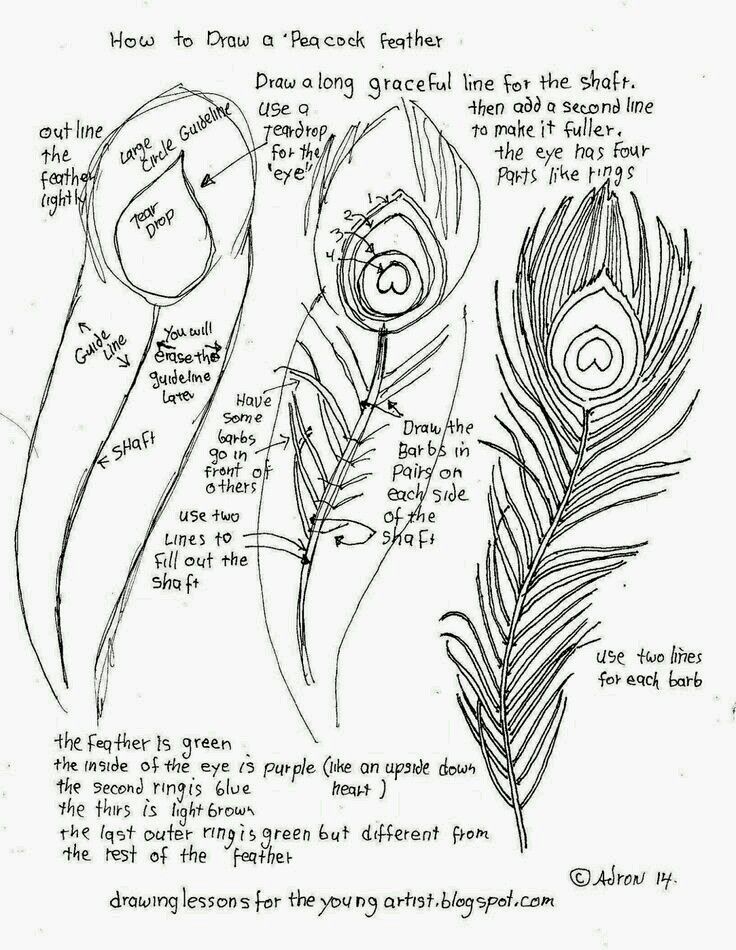 How to Draw a 'Peacock feather
Draw a long graceful line for the shaft.
then add a second line
to make it fuller.
the eye has four
Parts like rings
out line
the
feather
lightly
Large
Circle Guideline
Tear
Drop
use a
Teardrop
for the
"eye"
1
2
3
4
Guide
Line
You will
erase the
guideline
later
SHaft
Have
some
barbs
go in
front of
others
Draw the
Barbs in
Pairs on
each side
of the
shaft
use two
Lines to
fill out the
shaft
use two lines
for each barb
the feather is green
the inside of the eye is purple (like an upside down
heart)
the second ring is blue
the thirs is light brown
the last outer ring is green but different from
the rest of the feather
© Adron 14.
drawinglessons for the young artist.blogspot.com